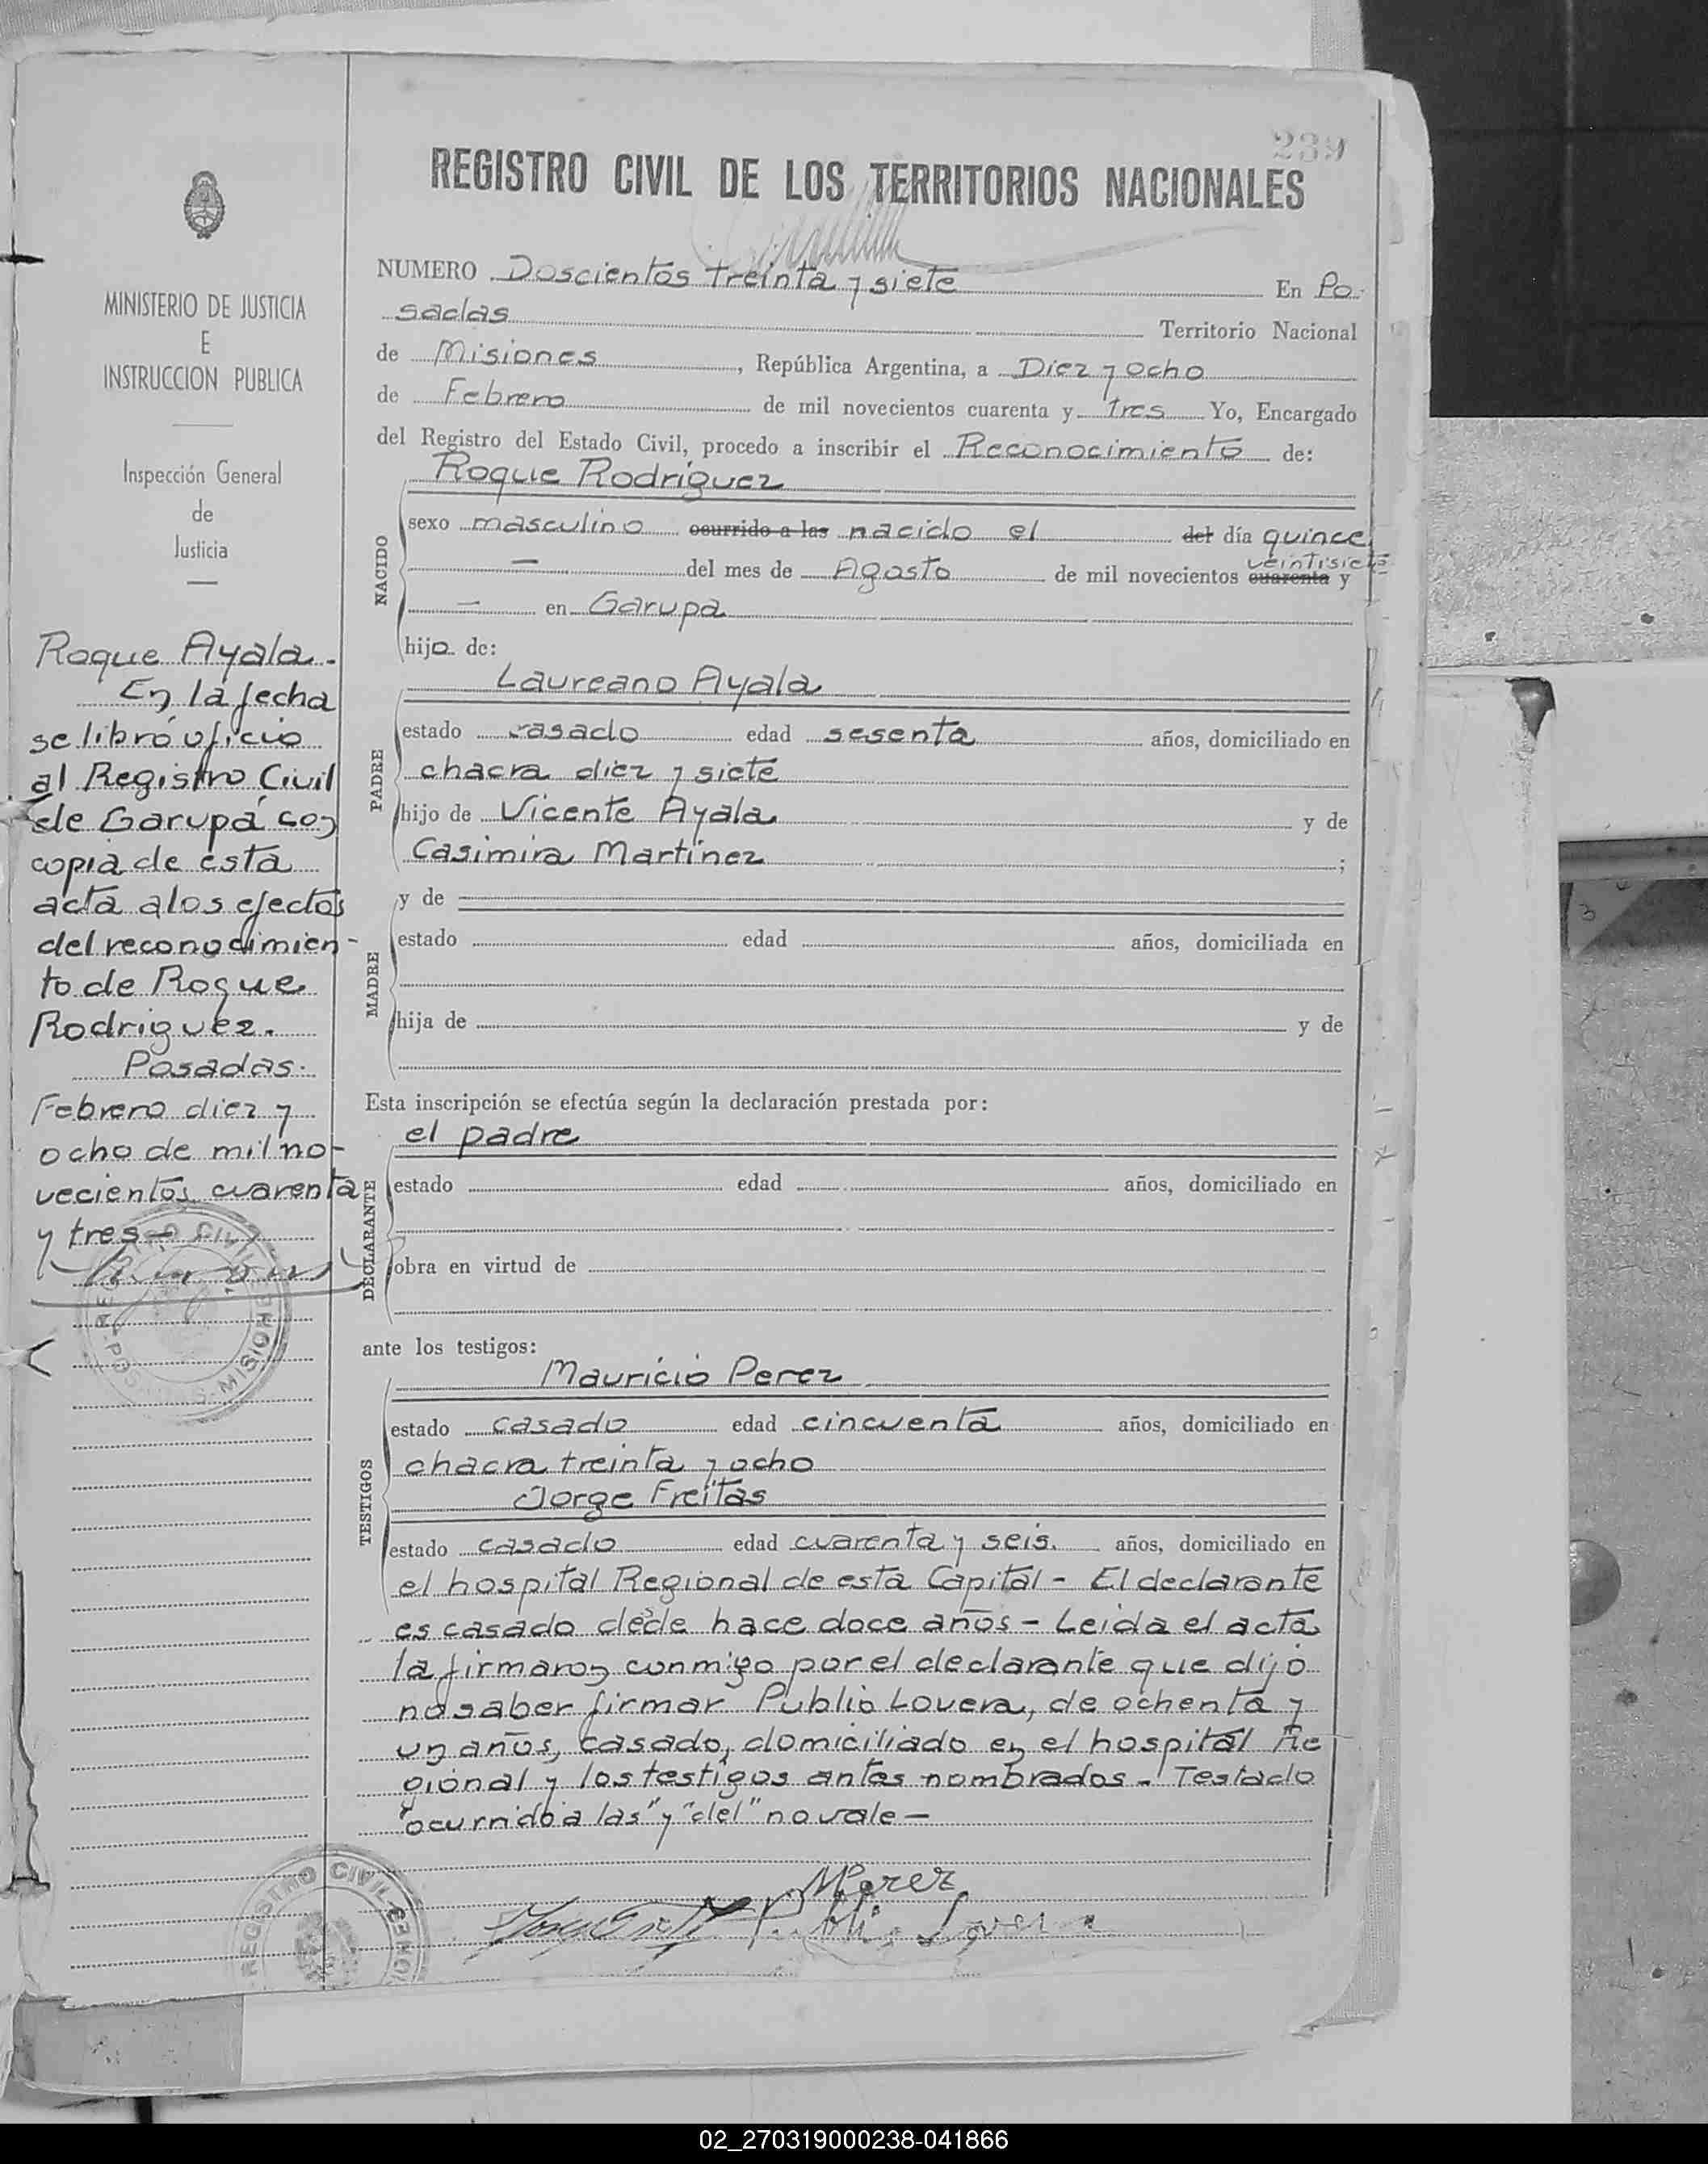 239
REGISTRO CIVIL DE LOS TERRITORIOS NACIONALES
MINISTERIO DE JUSTICIA
E
INSTRUCCION PUBLICA
Inspección General
de
Justicia
Roque Ayala.
En la fecha
se libró oficio
al Registro Civil
de Garupá con
copia de esta
acta a los efectos
del reconocimien-
to de Roque
Rodriguez.
Posadas.
Febrero diez y
ocho de mil no-
vecientos cuarenta
y tres-
REGISTRO CIVIL
POSADAS-MISIONES
NUMERO Doscientos treinta y siete En Po-
sadas Territorio Nacional
de Misiones, República Argentina, a Diez y ocho
de Febrero de mil novecientos cuarenta y tres Yo, Encargado
del Registro del Estado Civil, procedo a inscribir el Reconocimiento de:
Roque Rodriguez
NACIDO
sexo masculino ocurrido a las nacido el del día quince
— del mes de Agosto de mil novecientos cuarenta veintisiete y
— en Garupa
hijo de:
Laureano Ayala
PADRE
estado casado edad sesenta años, domiciliado en
chacra diez y siete
hijo de Vicente Ayala y de
Casimira Martinez ;
y de
MADRE
estado edad años, domiciliada en
hija de y de
Esta inscripción se efectúa según la declaración prestada por:
el padre
DECLARANTE
estado edad años, domiciliado en
obra en virtud de
ante los testigos:
Mauricio Perez
TESTIGOS
estado casado edad cincuenta años, domiciliado en
chacra treinta y ocho
Jorge Freitas
estado casado edad cuarenta y seis. años, domiciliado en
el hospital Regional de esta Capital - El declarante
es casado desde hace doce años - Leida el acta
la firmaron conmigo por el declarante que dijo
no saber firmar Publio Lovera, de ochenta y
un años, casado, domiciliado en el hospital Re
gional y los testigos antes nombrados - Testado
"ocurrido a las" y "del" no vale -
MPerez
Publio Lovera
REGISTRO CIVIL
3
02_270319000238-041866